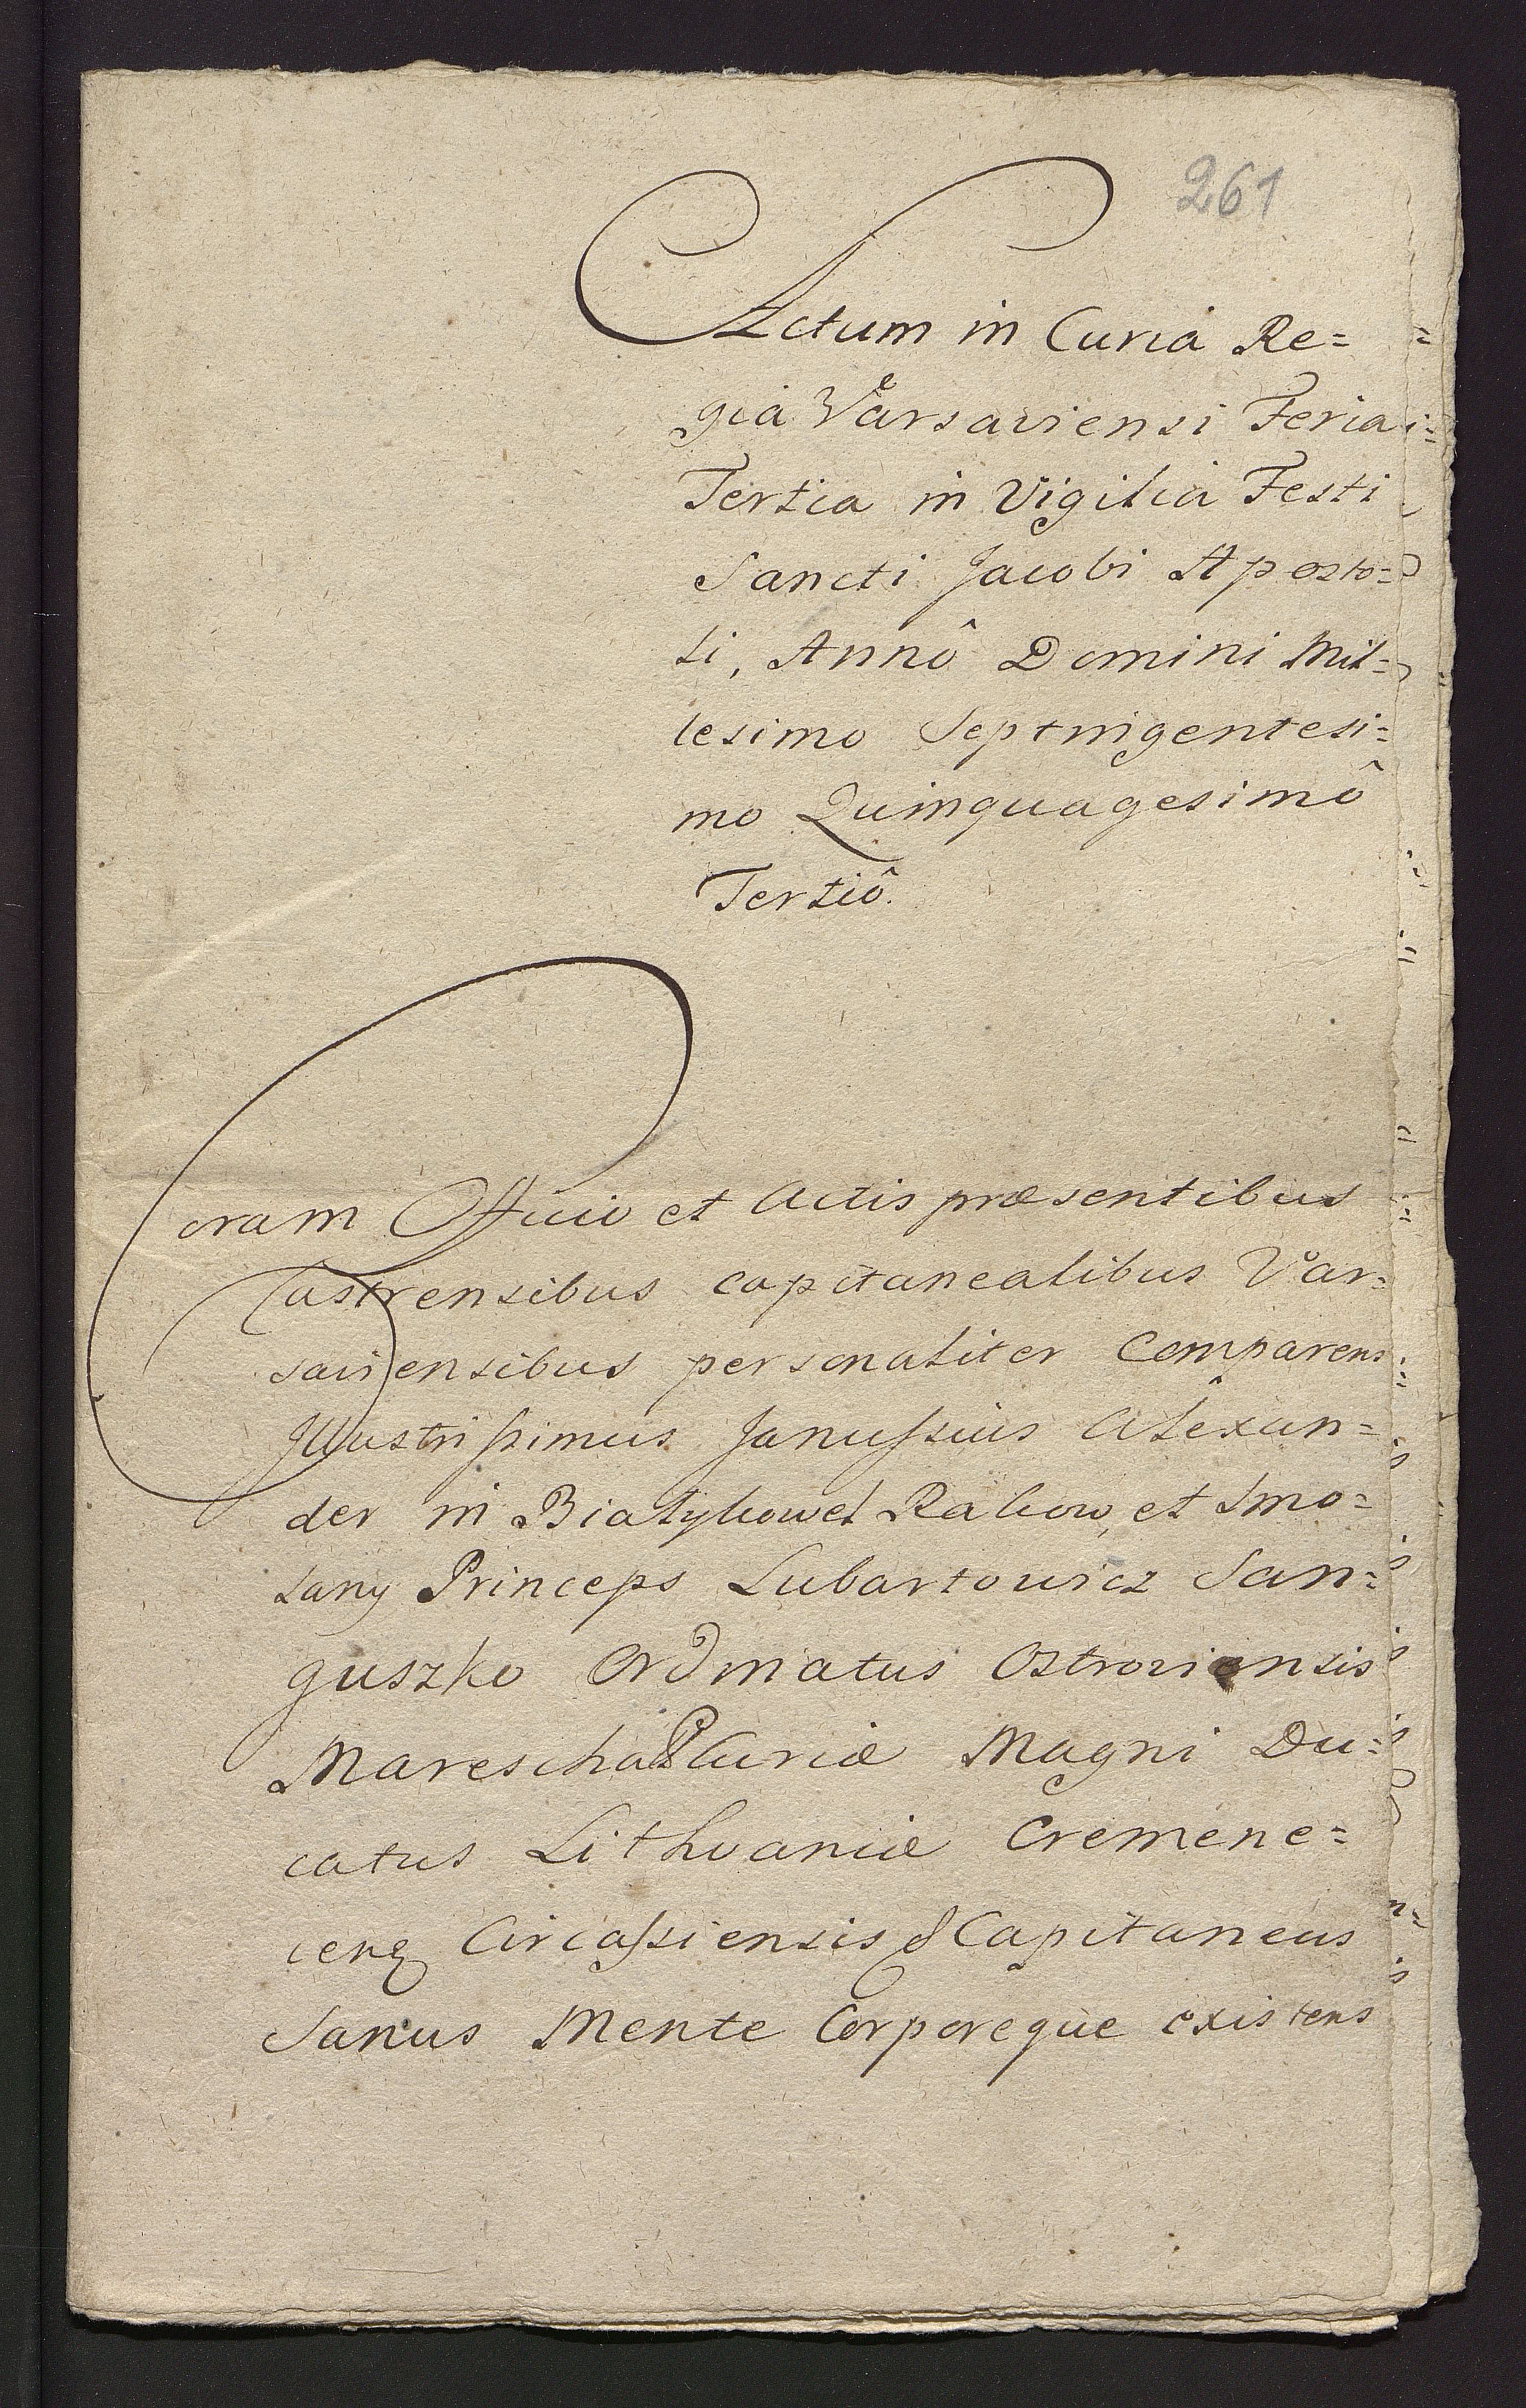 261
Actum in Curia Re=
gia Varsaviensi Feria
Tertia in Vigilia Festi
Sancti Jacobi Aposto=
li, Annô Domini Mil=
lesimo Septingentesi=
mo Quinquagesimô
Tertiô.
Coram Officio et Actis præsentibus
Castrensibus capitanealibus Var=
saviensibus personaliter Comparens
Illustrissimus Janussius Alexan=
der in Biatykowel Rakow, et Smo=
lany Princeps Lubartowicz San=
guszko Ordinatus Ostroviensis
Mareschal Curiæ Magni Du=
catus Lithvaniæ Cremene=
cen Circassiensis & Capitaneus
Sanus Mente Corporeque existens